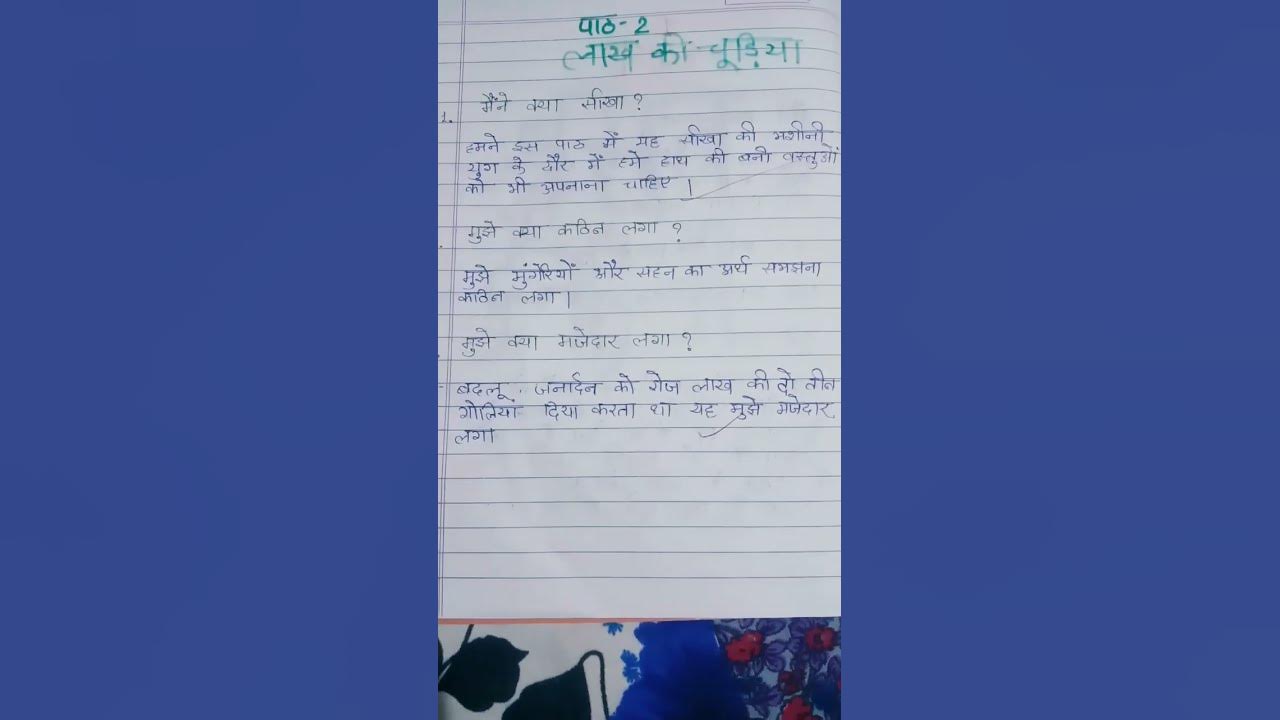 पाठ-2
लाख की चूड़िया
1. मैंने क्या सीखा ?
हमने इस पाठ में यह सीखा की मशीनी
युग के दौर में हमे हाथ की बनी वस्तुओं
को भी अपनाना चाहिए |
मुझे क्या कठिन लगा ?
मुझे मुंगेरियों और सहन का अर्थ समझना
कठिन लगा |
मुझे क्या मजेदार लगा ?
बदलू . जनार्दन को रोज लाख की दो तीन
गोलिया दिया करता था यह मुझे मजेदार
लगा